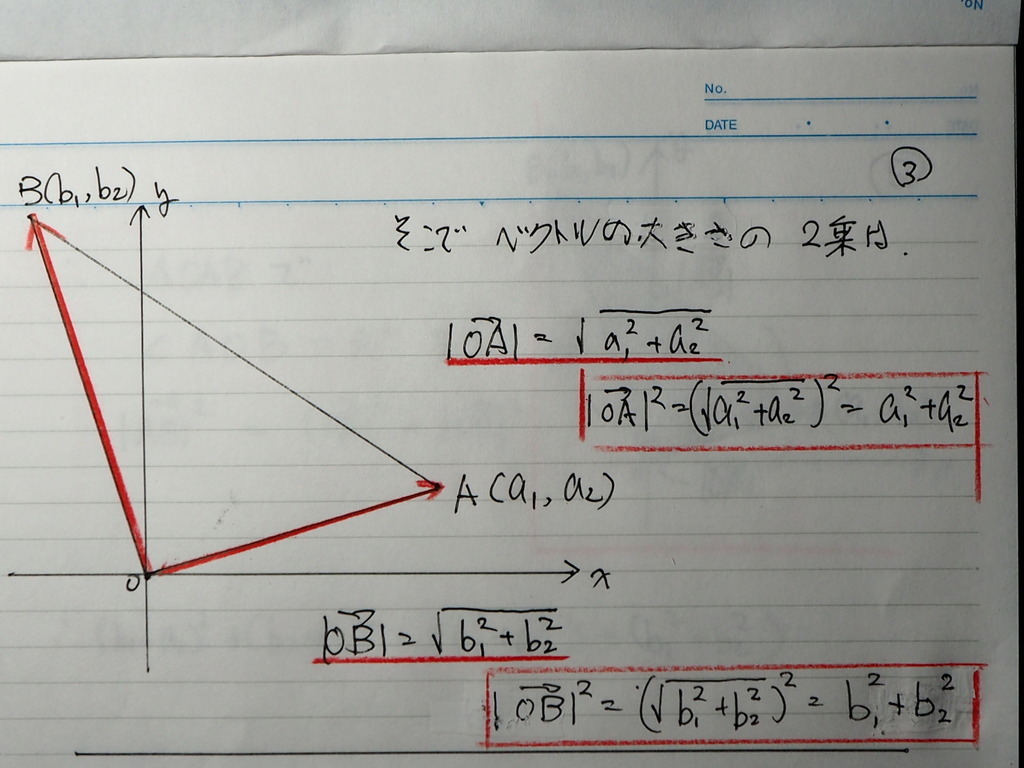 No.
No.
DATE
③
B(b₁,b₂) y
そこで ベクトルの大きさの 2乗は.
|OA⃗| = √(a₁²+a₂²)
|OA⃗|²=(√(a₁²+a₂²))²= a₁²+a₂²
A(a₁, a₂)
O
x
|OB⃗| = √(b₁²+b₂²)
|OB⃗|² = (√(b₁²+b₂²))² = b₁²+b₂²